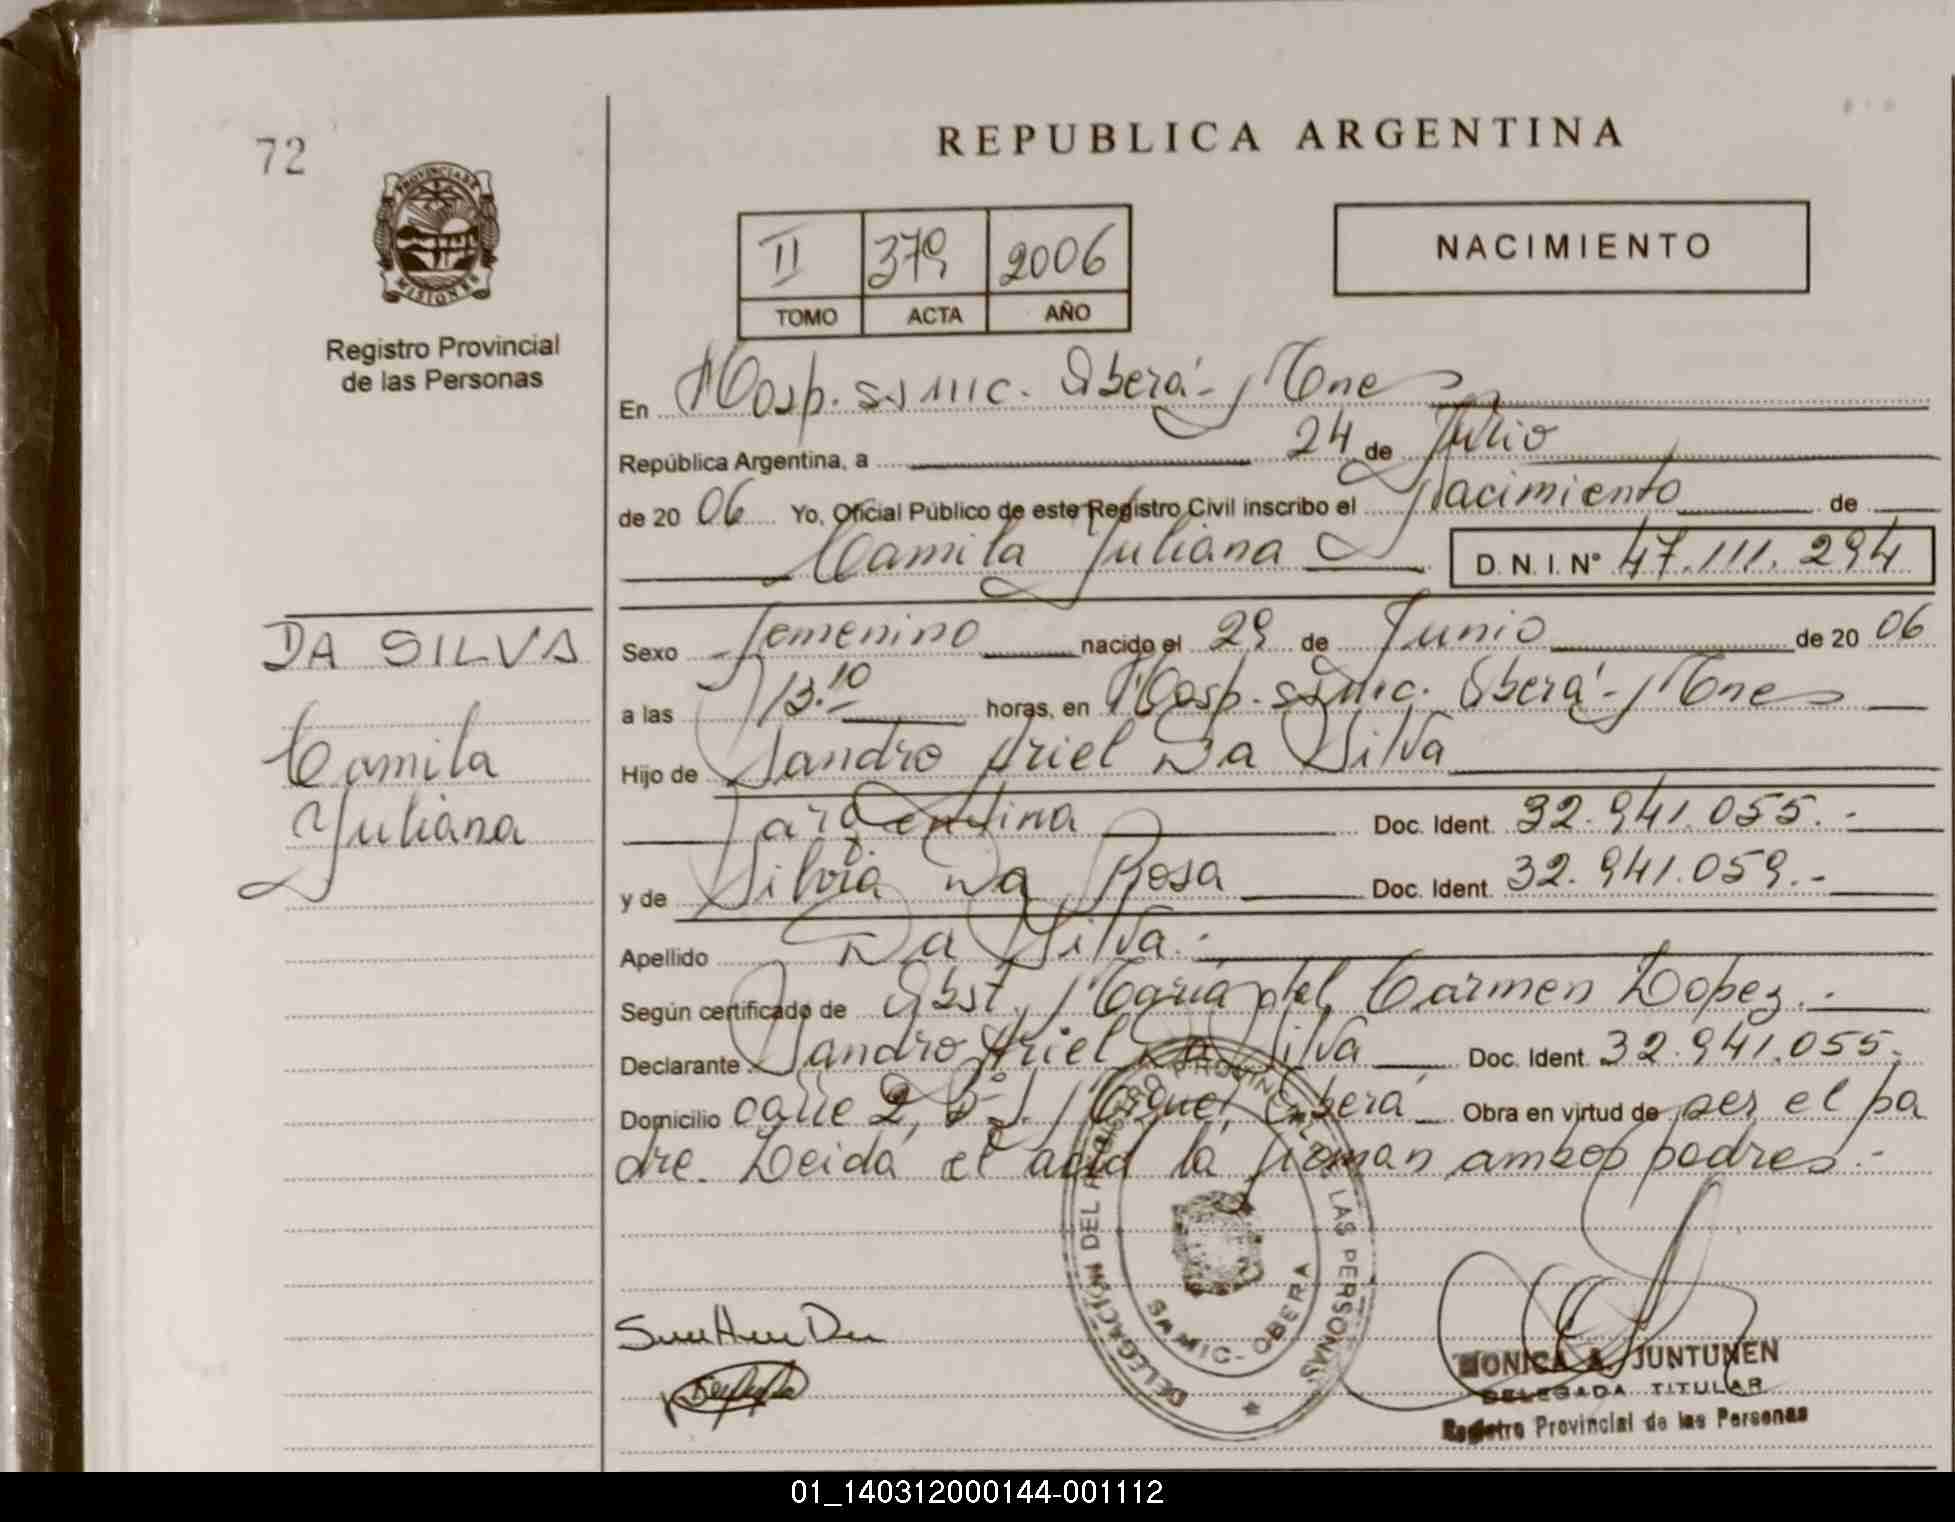 72
REPUBLICA ARGENTINA
PROVINCIA DE
MISIONES
Registro Provincial
de las Personas
II 379 2006
TOMO ACTA AÑO
NACIMIENTO
En Hosp. SAMIC. Oberá - Mnes
República Argentina, a 24 de Julio
de 20 06 Yo, Oficial Público de este Registro Civil inscribo el Nacimiento de
Camila Juliana
D. N. I. Nº 47.111.294
DA SILVA
Camila
Juliana
Sexo femenino nacido el 29 de Junio de 20 06
a las 13.10 horas, en Hosp. SAMIC. Oberá - Mnes
Hijo de Sandro Ariel Da Silva
argentina Doc. Ident. 32.941.055.-
y de Silvia Da Rosa Doc. Ident. 32.941.059.-
Apellido Da Silva.-
Según certificado de Obst. María del Carmen Lopez.-
Declarante Sandro Ariel Da Silva Doc. Ident. 32.941.055.
Domicilio calle 2, Bº Oberá Obra en virtud de ser el pa
dre. Leida el acta la firman ambos padres.-
DELEGACIÓN DEL REGISTRO PROVINCIAL DE LAS PERSONAS
SAMIC - OBERA
MONICA A. JUNTUNEN
DELEGADA TITULAR
Registro Provincial de las Personas
01_140312000144-001112